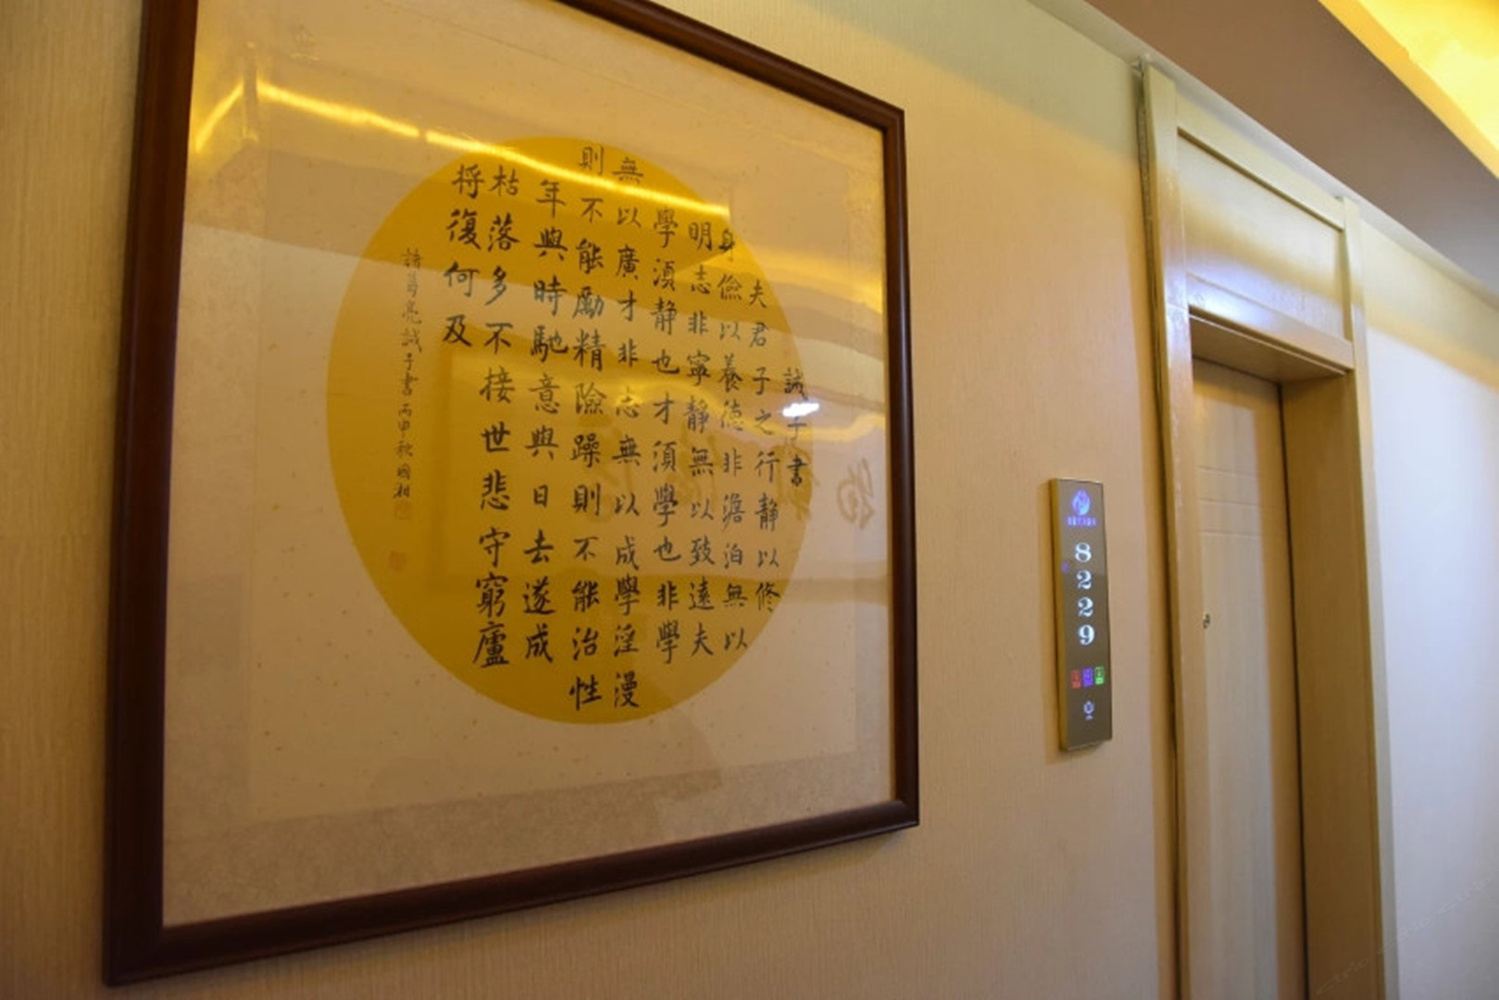 誡子書
夫君子之行静以修
身儉以養德非澹泊無以
明志非寧静無以致遠夫
學須静也才須學也非學
無以廣才非志無以成學淫漫
則不能勵精險躁則不能治性
年與時馳意與日去遂成
枯落多不接世悲守窮廬
将復何及
諸葛亮誡子書丙申秋國湘
8229